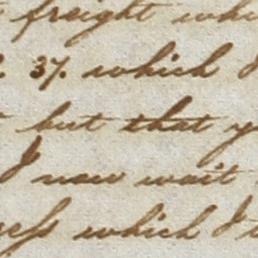 freight whi
37. which I
but that y
I now wait
ness which I